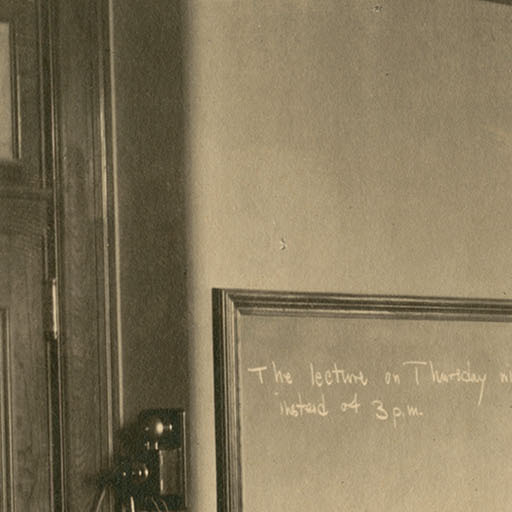 The lecture on Thursday
instead of 3 p.m.